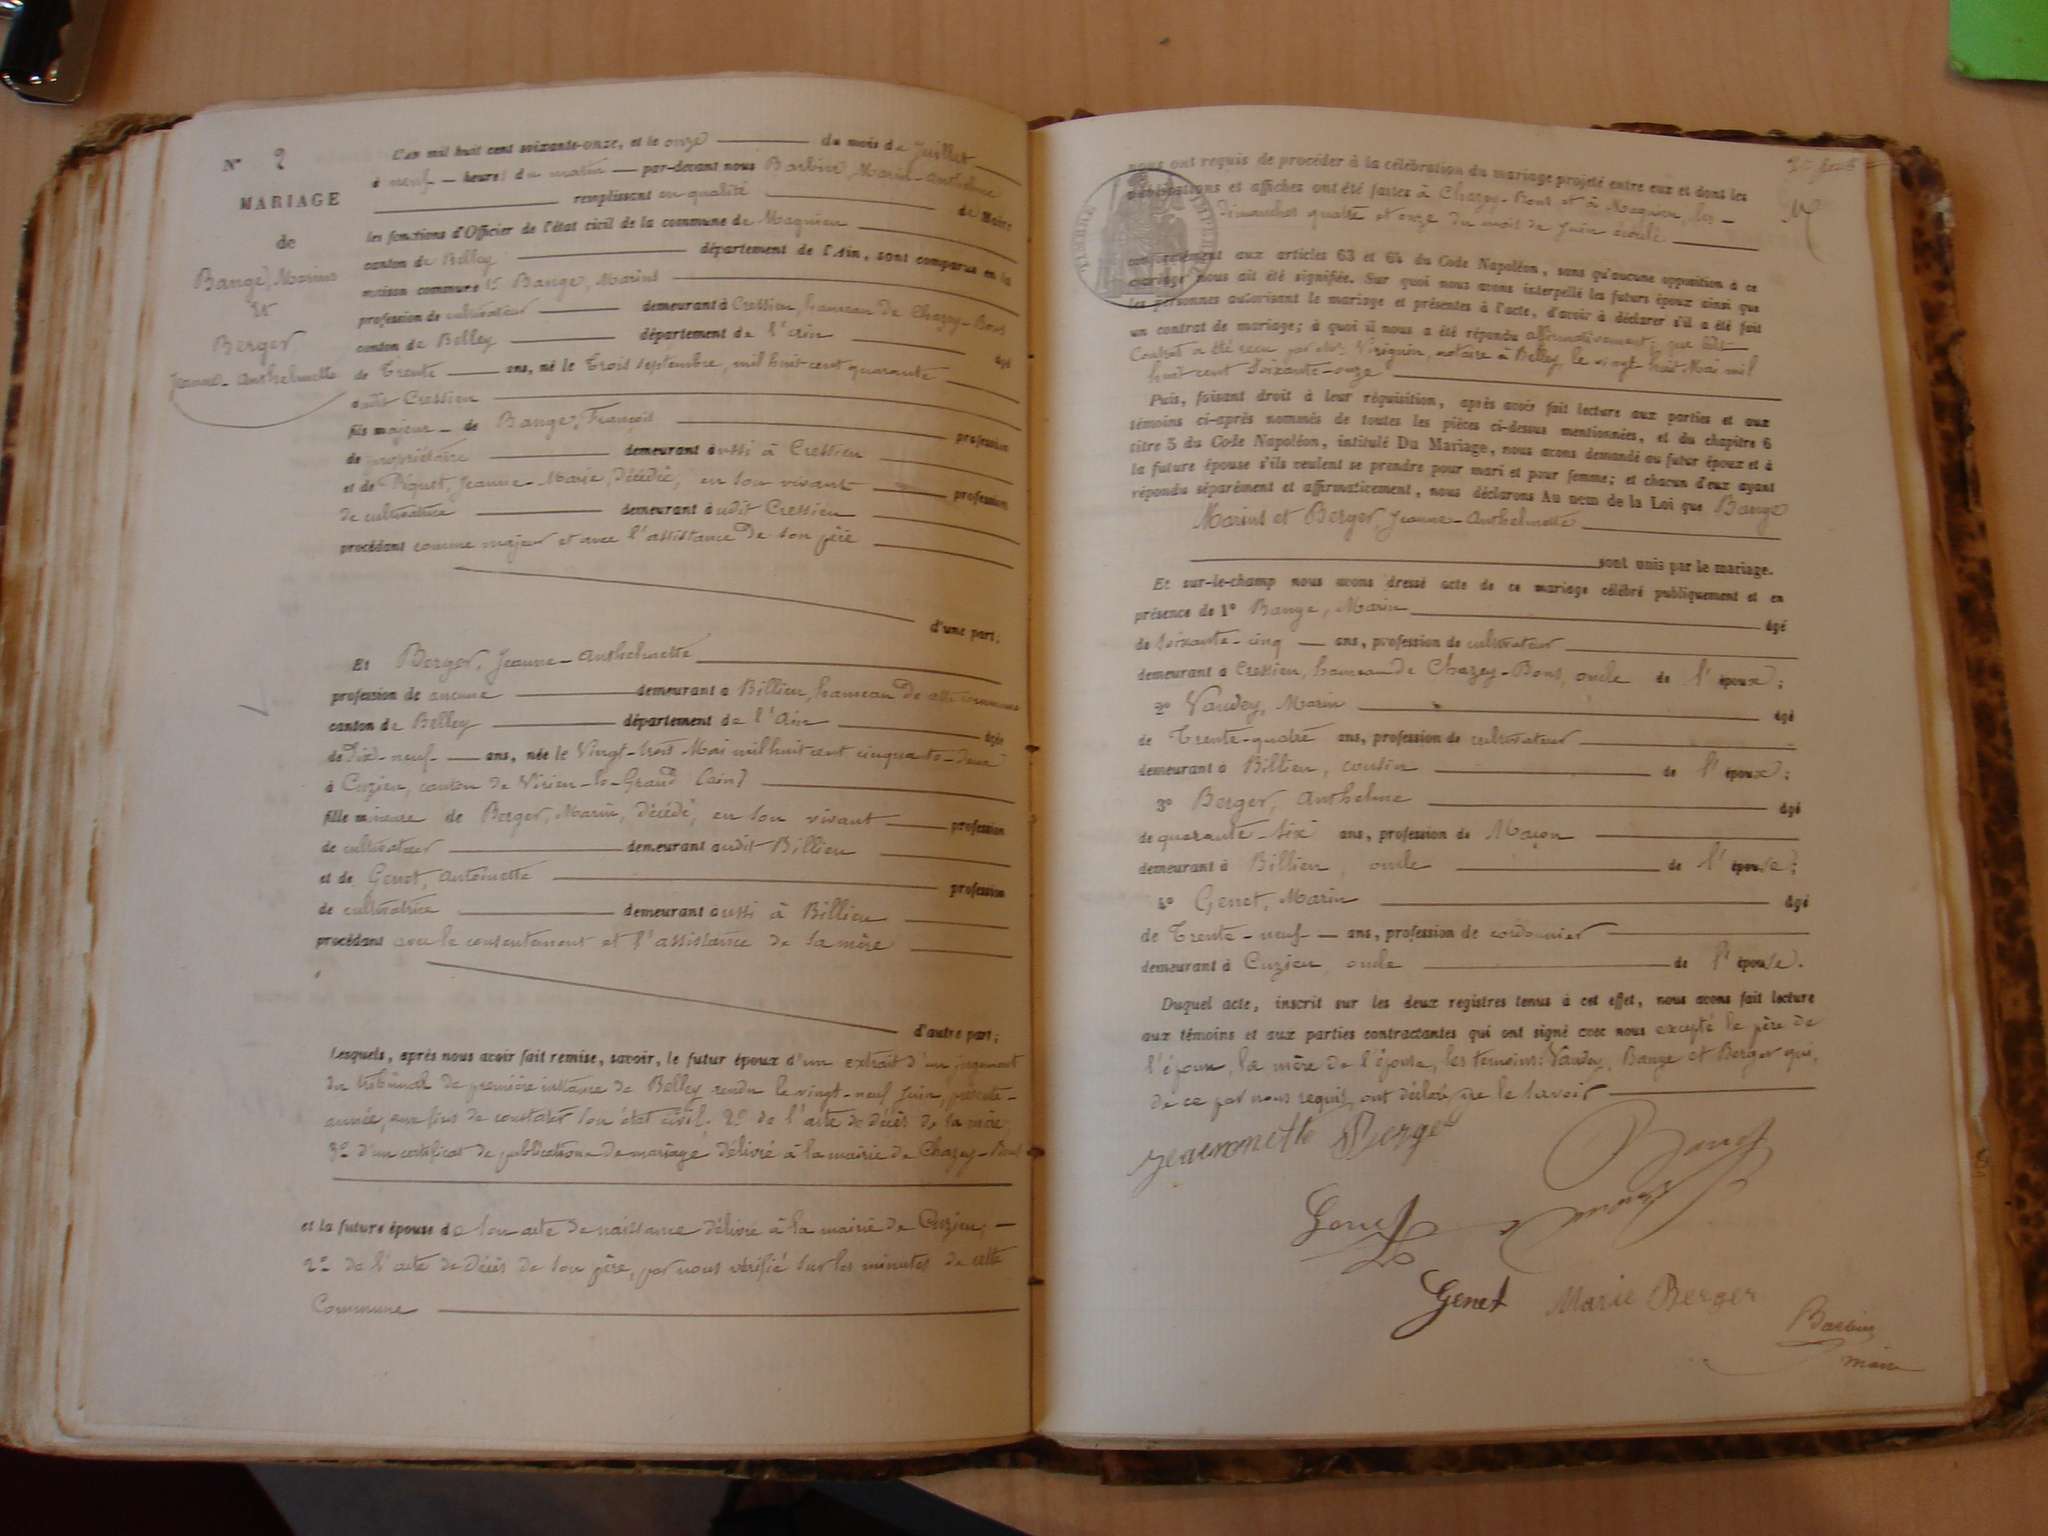 N° 2
MARIAGE
de
Bange, Marius
et
Berger,
Jeanne-Anthelmette
L'an mil huit cent soixante-onze, et le onze du mois de Juillet
à neuf heures du matin par-devant nous Barbin, Marin-Anthelme
remplissant en qualité de Maire
les fonctions d'Officier de l'état civil de la commune de Magnieu
canton de Belley département de l'Ain, sont comparus en la
maison commune Bange, Marius
profession de cultivateur demeurant à Cressieu, hameau de Chazey-Bons
canton de Belley département de l'Ain âgé
de Trente ans, né le Trois septembre, mil huit cent quarante
audit Cressieu
fils majeur de Bange, François profession
de propriétaire demeurant aussi à Cressieu
et de Piquet, Jeanne-Marie, décédée, en son vivant profession
de cultivatrice demeurant audit Cressieu
procédant comme majeur et avec l'assistance de son père
d'une part;
Et Berger, Jeanne-Anthelmette
profession de aucune demeurant à Billieu, hameau de cette commune
canton de Belley département de l'Ain âgée
de Dix-neuf ans, née le Vingt-trois Mai mil huit cent cinquante-deux
à Cuzieu, canton de Virieu-le-Grand (ain)
fille mineure de Berger, Marin, décédé, en son vivant profession
de cultivateur demeurant audit Billieu
et de Genet, Antoinette profession
de cultivatrice demeurant aussi à Billieu
procédant avec le consentement et l'assistance de sa mère
d'autre part;
Lesquels, après nous avoir fait remise, savoir, le futur époux d'un extrait d'un jugement
du tribunal de première instance de Belley rendu le vingt-neuf Juin, présente
année, aux fins de constater son état civil; 2° de l'acte de décès de sa mère;
3° d'un certificat de publications de mariage délivré à la mairie de Chazey-Bons
et la future épouse de son acte de naissance délivré à la mairie de Cuzieu;
2° de l'acte de décès de son père, par nous vérifié sur les minutes de cette
Commune
nous ont requis de procéder à la célébration du mariage projeté entre eux et dont les
publications et affiches ont été faites à Chazey-Bons et à Magnieu, les
dimanches quatre et onze du mois de Juin écoulé
conformément aux articles 63 et 64 du Code Napoléon, sans qu'aucune opposition à ce
mariage nous ait été signifiée. Sur quoi nous avons interpellé les futurs époux ainsi que
les personnes autorisant le mariage et présentes à l'acte, d'avoir à déclarer s'il a été fait
un contrat de mariage; à quoi il nous a été répondu affirmativement; que ledit
Contrat a été reçu par Me notaire à Belley, le vingt huit Mai mil
huit cent soixante-onze
Puis, faisant droit à leur réquisition, après avoir fait lecture aux parties et aux
témoins ci-après nommés de toutes les pièces ci-dessus mentionnées, et du chapitre 6
titre 5 du Code Napoléon, intitulé Du Mariage, nous avons demandé au futur époux et à
la future épouse s'ils veulent se prendre pour mari et pour femme; et chacun d'eux ayant
répondu séparément et affirmativement, nous déclarons Au nom de la Loi que Bange
Marius et Berger, Jeanne-Anthelmette
sont unis par le mariage.
Et sur-le-champ nous avons dressé acte de ce mariage célébré publiquement et en
présence de 1° Bange, Marin âgé
de soixante-cinq ans, profession de cultivateur
demeurant à Cressieu, hameau de Chazey-Bons, oncle de l'époux;
2° Vaudey, Marin âgé
de Trente-quatre ans, profession de cultivateur
demeurant à Billieu, cousin de l'époux;
3° Berger, Anthelme âgé
de quarante-six ans, profession de Maçon
demeurant à Billieu, oncle de l'épouse;
4° Genet, Marin âgé
de Trente-neuf ans, profession de cordonnier
demeurant à Cuzieu, oncle de l'épouse.
Duquel acte, inscrit sur les deux registres tenus à cet effet, nous avons fait lecture
aux témoins et aux parties contractantes qui ont signé avec nous excepté le père de
l'époux, la mère de l'épouse, les témoins: Vaudey, Bange et Berger qui,
de ce par nous requis, ont déclaré ne le savoir
Jeannette Berger
Genet
Genet Marie Berger
Barbin
maire